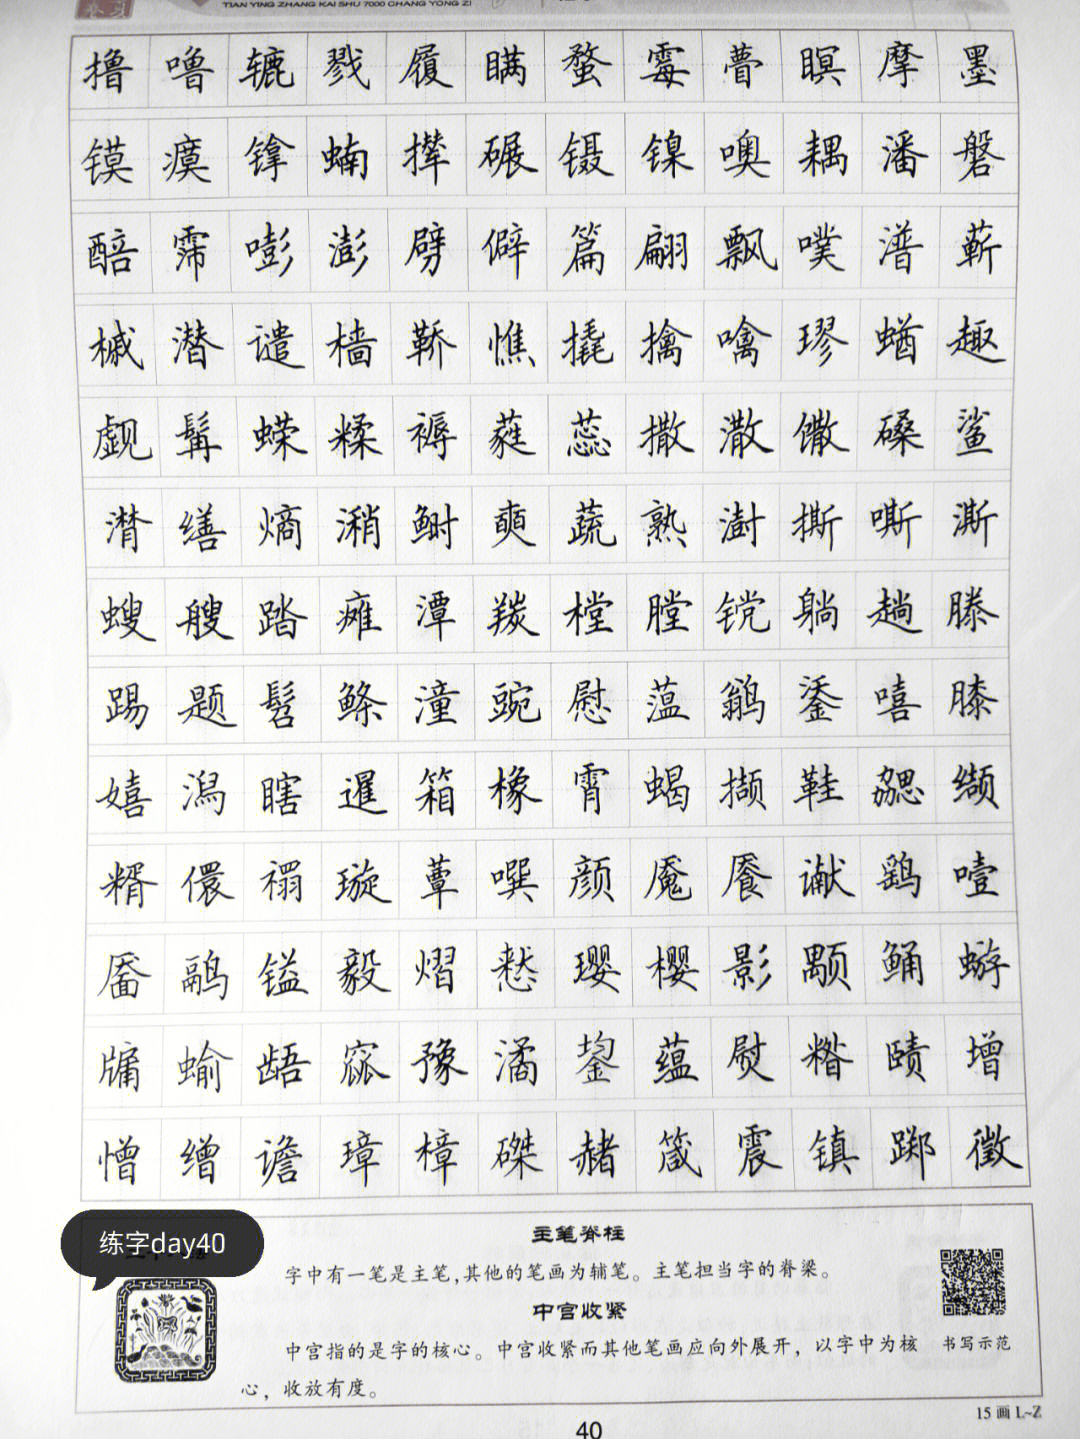 TIAN YING ZHANG KAI SHU 7000 CHANG YONG ZI
撸噜辘戮履瞒蝥霉瞢瞑摩墨
镆瘼镎蝻撵碾镊镍噢耦潘磐
醅霈嘭澎劈僻篇翩飘噗潽蕲
槭潜谴樯鞒憔撬擒噙璆蝤趣
觑髯蝾糅褥蕤蕊撒潵馓磉鲨
潸缮熵潲鲥奭蔬熟澍撕嘶澌
螋艘踏瘫潭羰樘膛镋躺趟滕
踢题髫鲦潼豌慰蕰鹟鋈嘻膝
嬉潟瞎暹箱橡霄蝎撷鞋勰缬
糈儇禤璇蕈噀颜魇餍谳鹞噎
靥鹝镒毅熠慭璎樱影颙鲬蝣
牖蝓龉窳豫潏鋆蕴熨糌赜增
憎缯谵璋樟磔赭箴震镇踯徵
练字day40
主笔脊柱
字中有一笔是主笔,其他的笔画为辅笔。主笔担当字的脊梁。
中宫收紧
中宫指的是字的核心。中宫收紧而其他笔画应向外展开，以字中为核
心，收放有度。
书写示范
15画L~Z
40